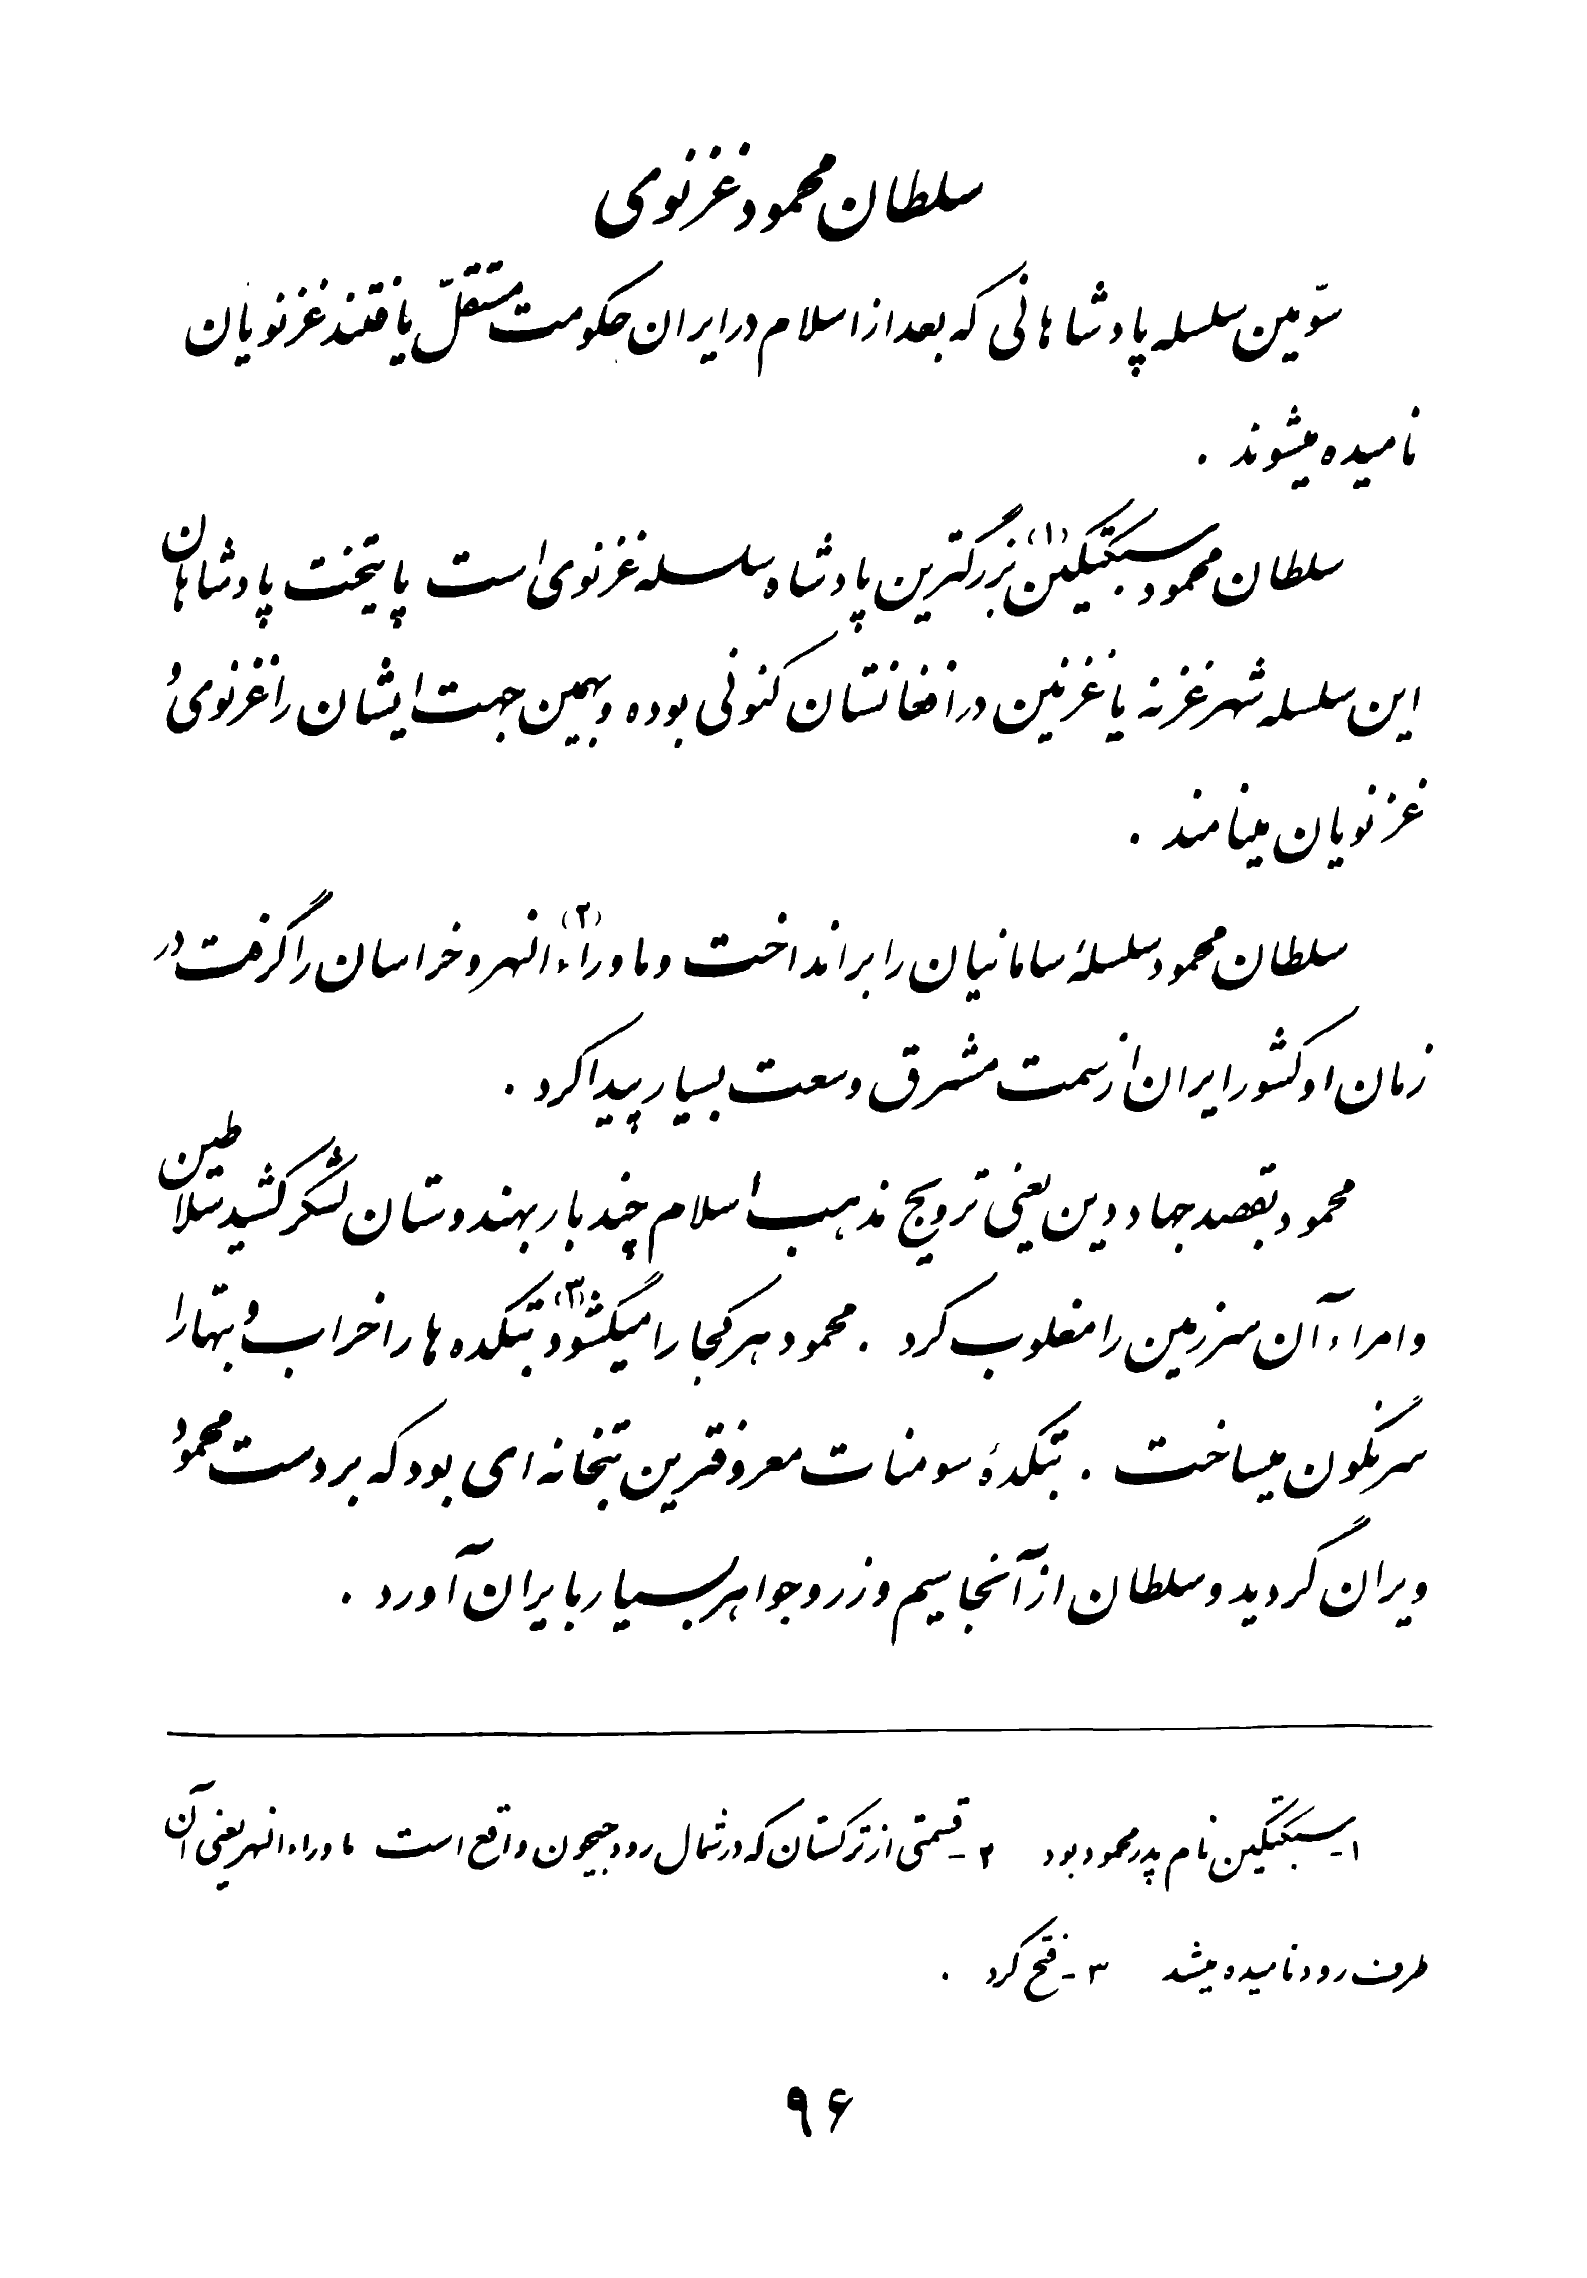 سلطان محمود غزنوی
سوّمین سلسله پادشاهانی که بعد از اسلام در ایران حکومت مستقلّ یافتند غزنویان
نامیده میشوند .
سلطان محمود سبکتکین (۱) بزرگترین پادشاه سلسله غزنوی است پایتخت پادشاهان
این سلسله شهر غزنه یا غزنین در افغانستان کنونی بوده و بهمین جهت ایشان را غزنوی و
غزنویان مینامند .
سلطان محمود سلسلهٔ سامانیان را برانداخت و ماوراءالنهر (۲) و خراسان را گرفت در
زمان او کشور ایران از سمت مشرق وسعت بسیار پیدا کرد .
محمود بقصد جهاد دین یعنی ترویج مذهب اسلام چند بار بهندوستان لشگر کشید سلاطین
و امراء آن سرزمین را مغلوب کرد . محمود هر کجا را میگشود (۳) بتکده ها را خراب و بتها را
سرنگون میساخت . بتکدهٔ سومنات معروفترین بتخانه ای بود که بر دست محمود
ویران گردید و سلطان از آنجا سیم و زر و جواهر بسیار بایران آورد .
۱ - سبکتکین نام پدر محمود بود ۲ - قسمتی از ترکستان که در شمال رود جیحون واقع است ماوراءالنهر یعنی آن
طرف رود نامیده میشد ۳ - فتح کرد .
۹۶